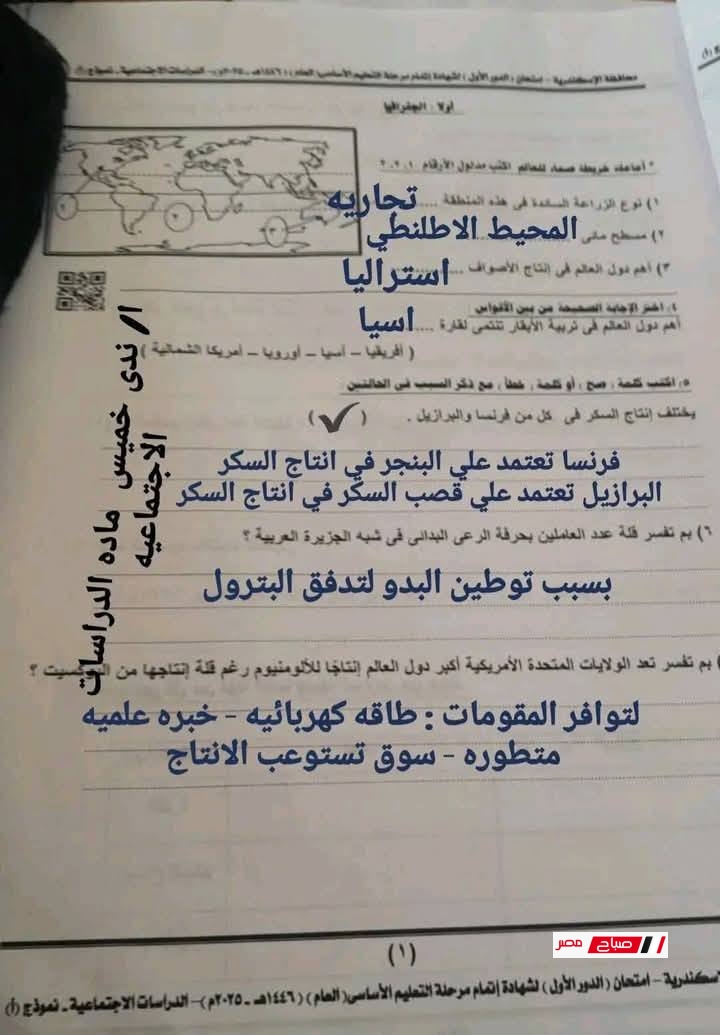 محافظة الإسكندرية - امتحان (الدور الأول) لشهادة إتمام مرحلة التعليم الأساسى (العام) (١٤٤٦هـ - ٢٠٢٥م) - الدراسات الاجتماعية - نموذج (أ)
أولا : الجغرافيا
* أمامك خريطة صماء للعالم اكتب مدلول الأرقام ١،٢،٣
١) نوع الزراعة السائدة فى هذه المنطقة .... تجاريه
٢) مسطح مائى المحيط الاطلنطي
٣) أهم دول العالم فى إنتاج الأصواف .... استراليا
٤: اختر الإجابة الصحيحة من بين الأقواس
أهم دول العالم فى تربية الأبقار تنتمى لقارة .... اسيا
( أفريقيا – أسيا – أوروبا – أمريكا الشمالية )
٥: اكتب كلمة ، صح ، أو كلمة ، خطأ ، مع ذكر السبب فى الحالتين
يختلف إنتاج السكر فى كل من فرنسا والبرازيل . ( ✓ )
فرنسا تعتمد علي البنجر في انتاج السكر
البرازيل تعتمد علي قصب السكر في انتاج السكر
٦) بم تفسر قلة عدد العاملين بحرفة الرعى البدائى فى شبه الجزيرة العربية ؟
بسبب توطين البدو لتدفق البترول
) بم تفسر تعد الولايات المتحدة الأمريكية أكبر دول العالم إنتاجًا للألومنيوم رغم قلة إنتاجها من البوكسيت ؟
لتوافر المقومات : طاقه كهربائيه - خبره علميه
متطوره - سوق تستوعب الانتاج
ا/ ندى خميس ماده الدراسات
الاجتماعيه
صباح مصر
(١)
سكندرية - امتحان (الدور الأول) لشهادة إتمام مرحلة التعليم الأساسى (العام) (١٤٤٦هـ - ٢٠٢٥م) - الدراسات الاجتماعية - نموذج (أ)